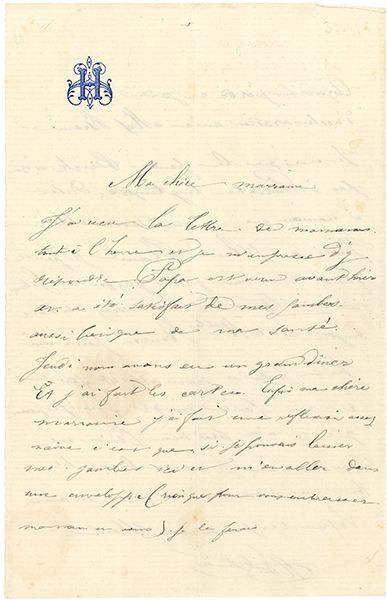 H
Ma chère marraine
J'ai reçu la lettre de maman
tout à l'heure et je m'empresse d'y
répondre. Papa est venu avant hier
a été satisfait de mes jambes
aussi bien que de ma santé.
Jeudi nous avons eu un grand diner
Et j'ai fait les cartes. Enfin ma chère
marraine j'ai fait une reflexion assez
naïve c'est que si je pouvais laisser
mes jambes ici et m'en aller dans
une enveloppe (rien que pour vous embrasser
maman et vous). je le ferais